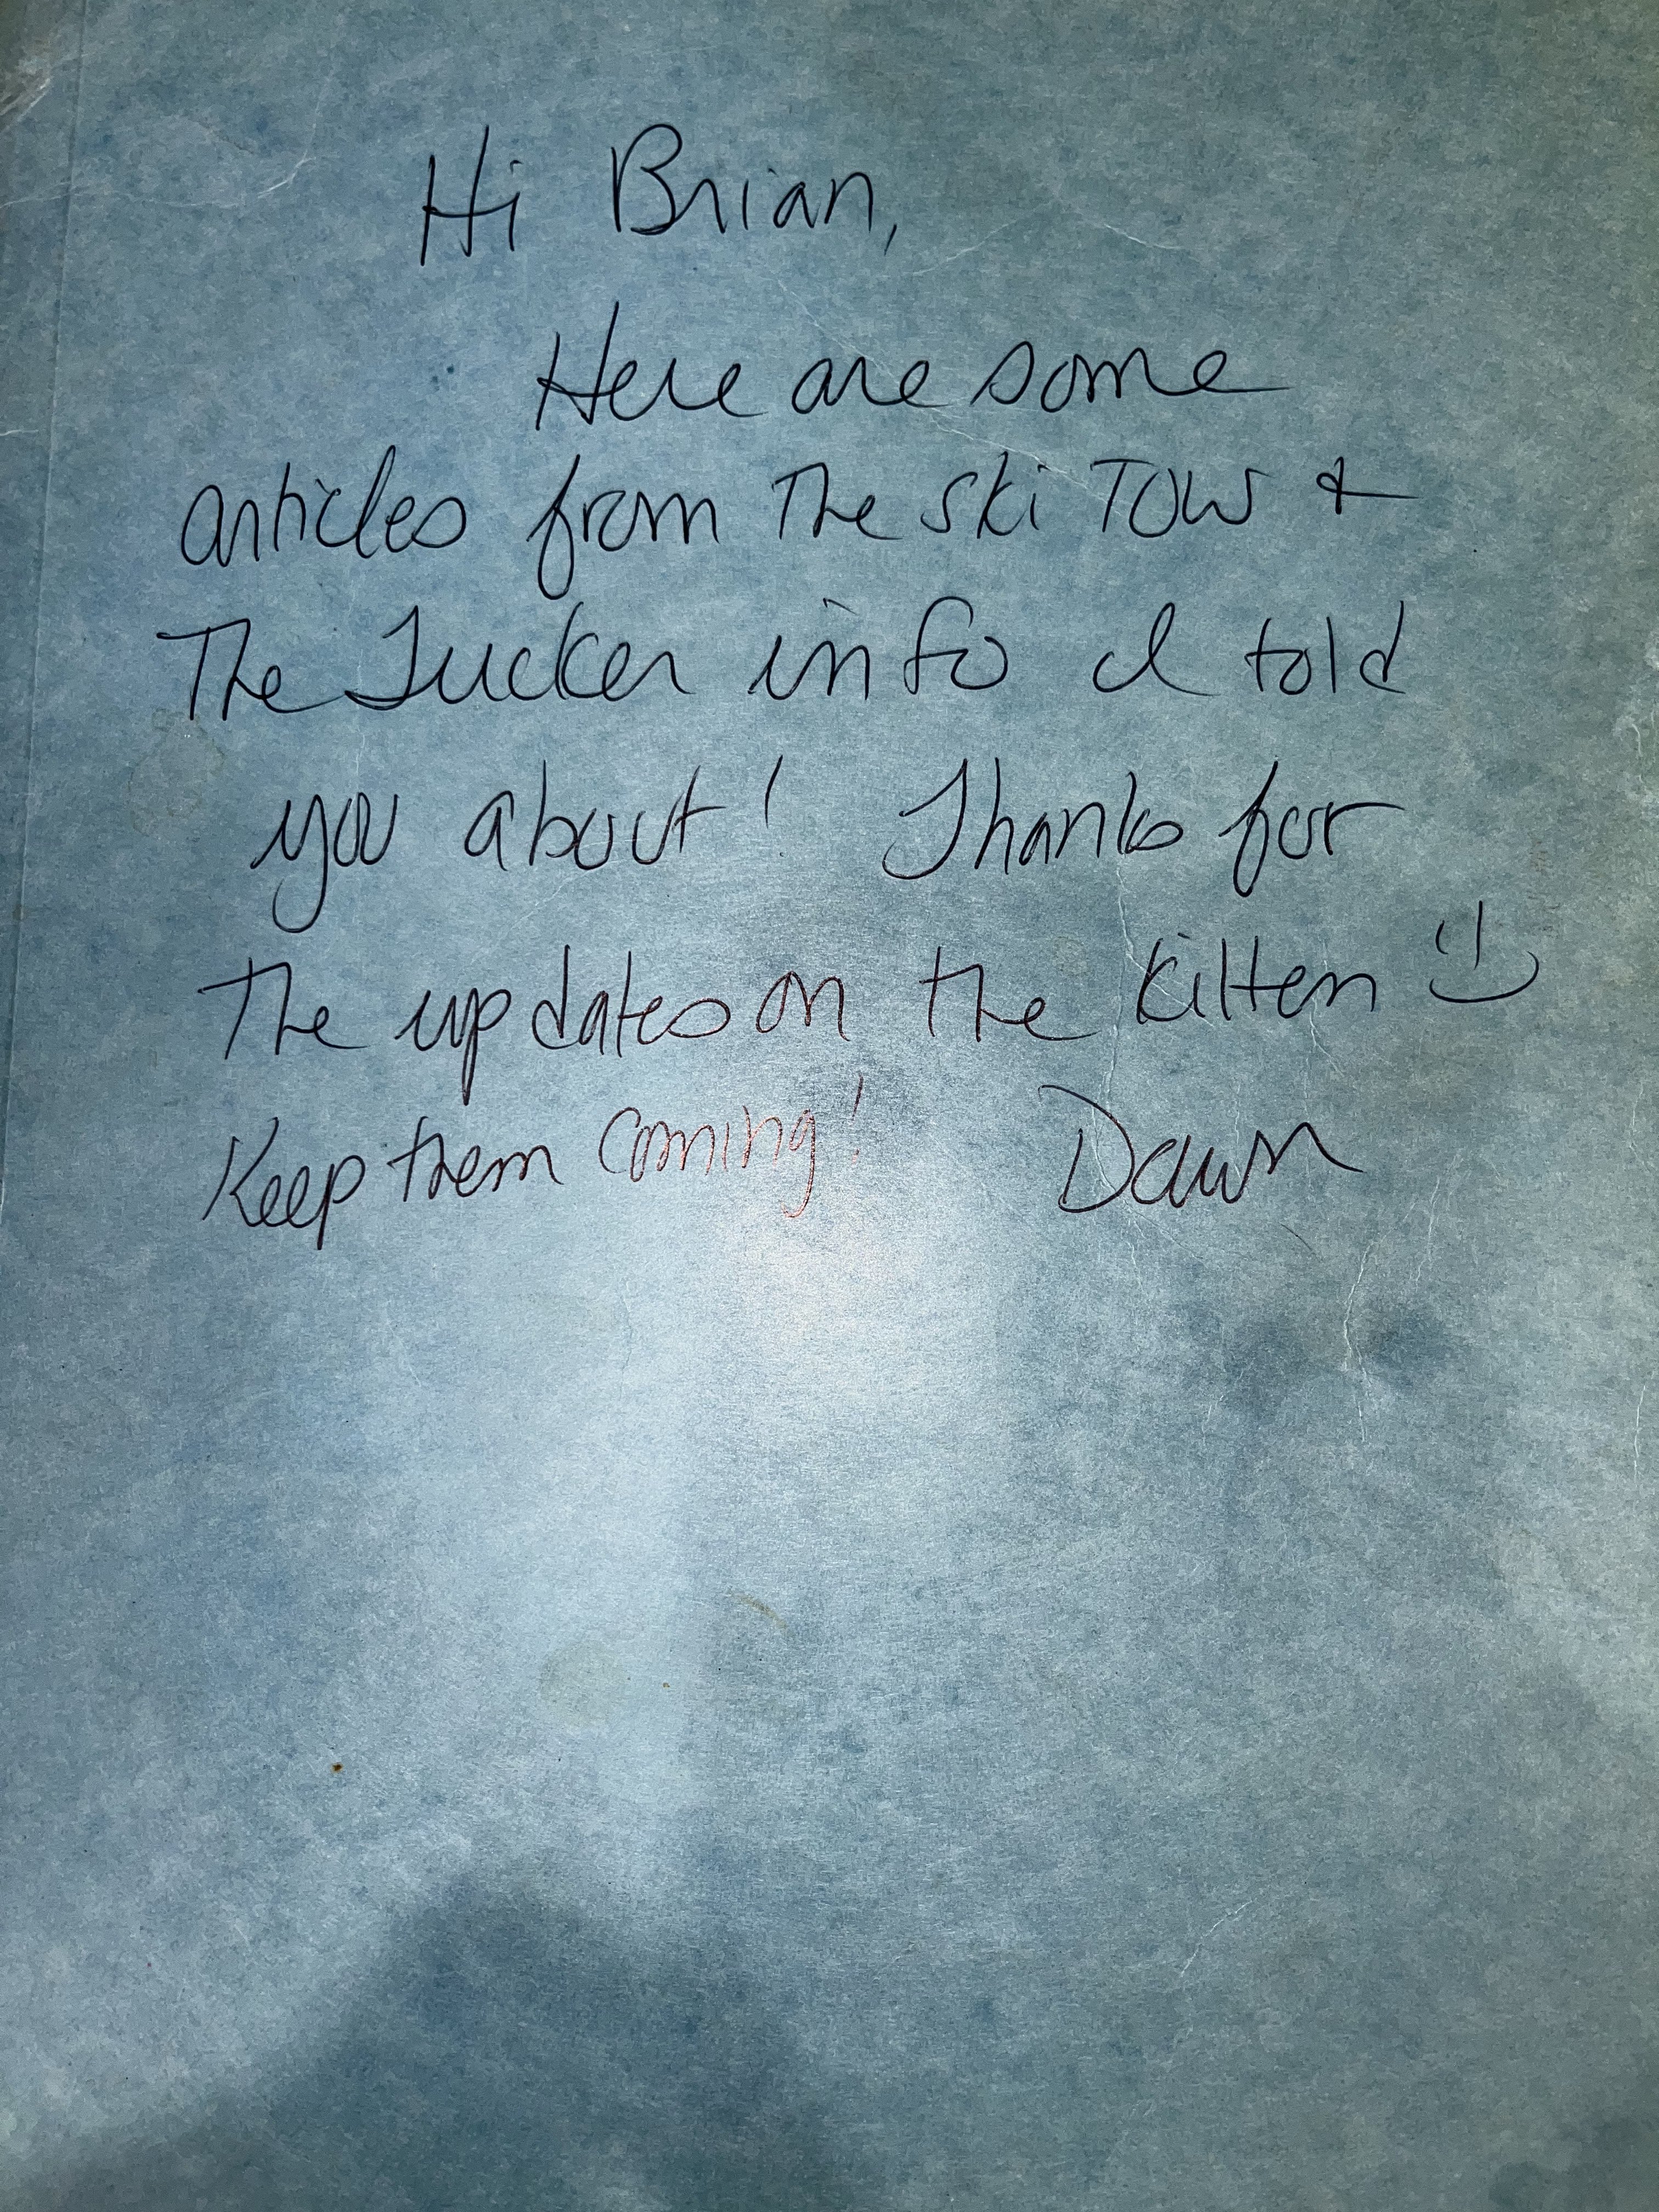 Hi Brian,
Here are some
articles from The Ski TOW &
The Tucker info I told
you about! Thanks for
The updates on the kitten :)
Keep them coming! Dawn